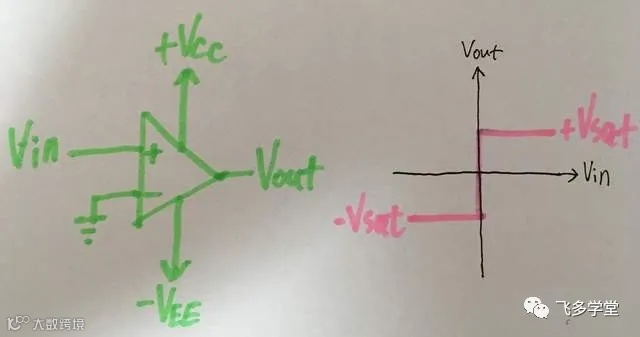 +VCC
Vin
+
-
Vout
-VEE
Vout
+Vsat
Vin
-Vsat
飞多学堂
大数跨境